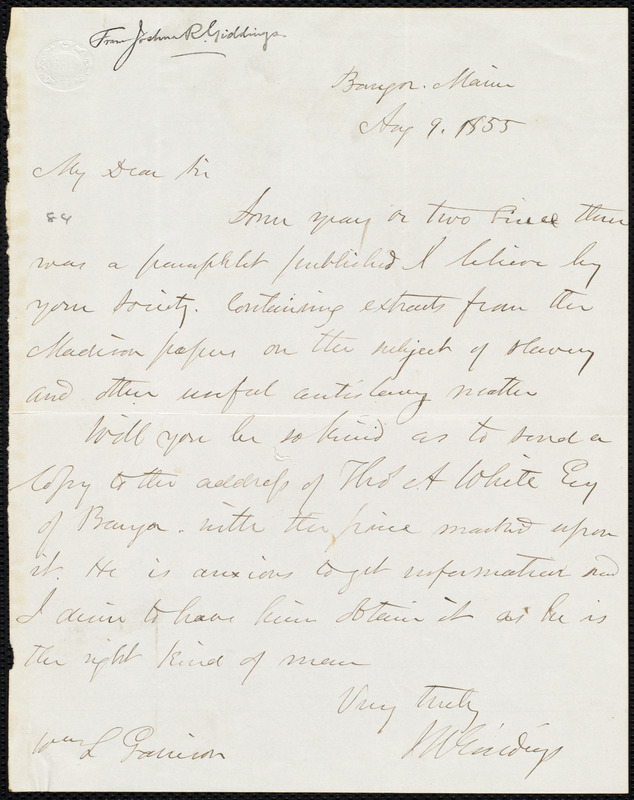 From Joshua R. Giddings
Bangor. Maine
Aug 9. 1855
My Dear Sir
84
Some year or two since there
was a pamphlet published I believe by
your society. Containing extracts from the
Madison papers on the subject of slavery
and other useful antislavery matter
Will you be so kind as to send a
Copy to the address of Thos A White Esq
of Bangor. with the price marked upon
it. He is anxious to get information and
I desire to have him obtain it as he is
the right kind of man
Very truly
J R Giddings
Wm L Garrison